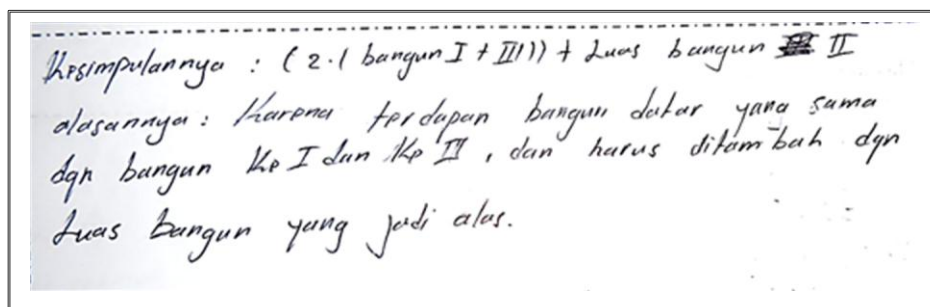 Kesimpulannya : (2.( bangun I + III)) + Luas bangun II
alasannya : Karena terdapan bangun datar yang sama
dgn bangun Ke I dan Ke III, dan harus ditambah dgn
Luas bangun yang jadi alas.